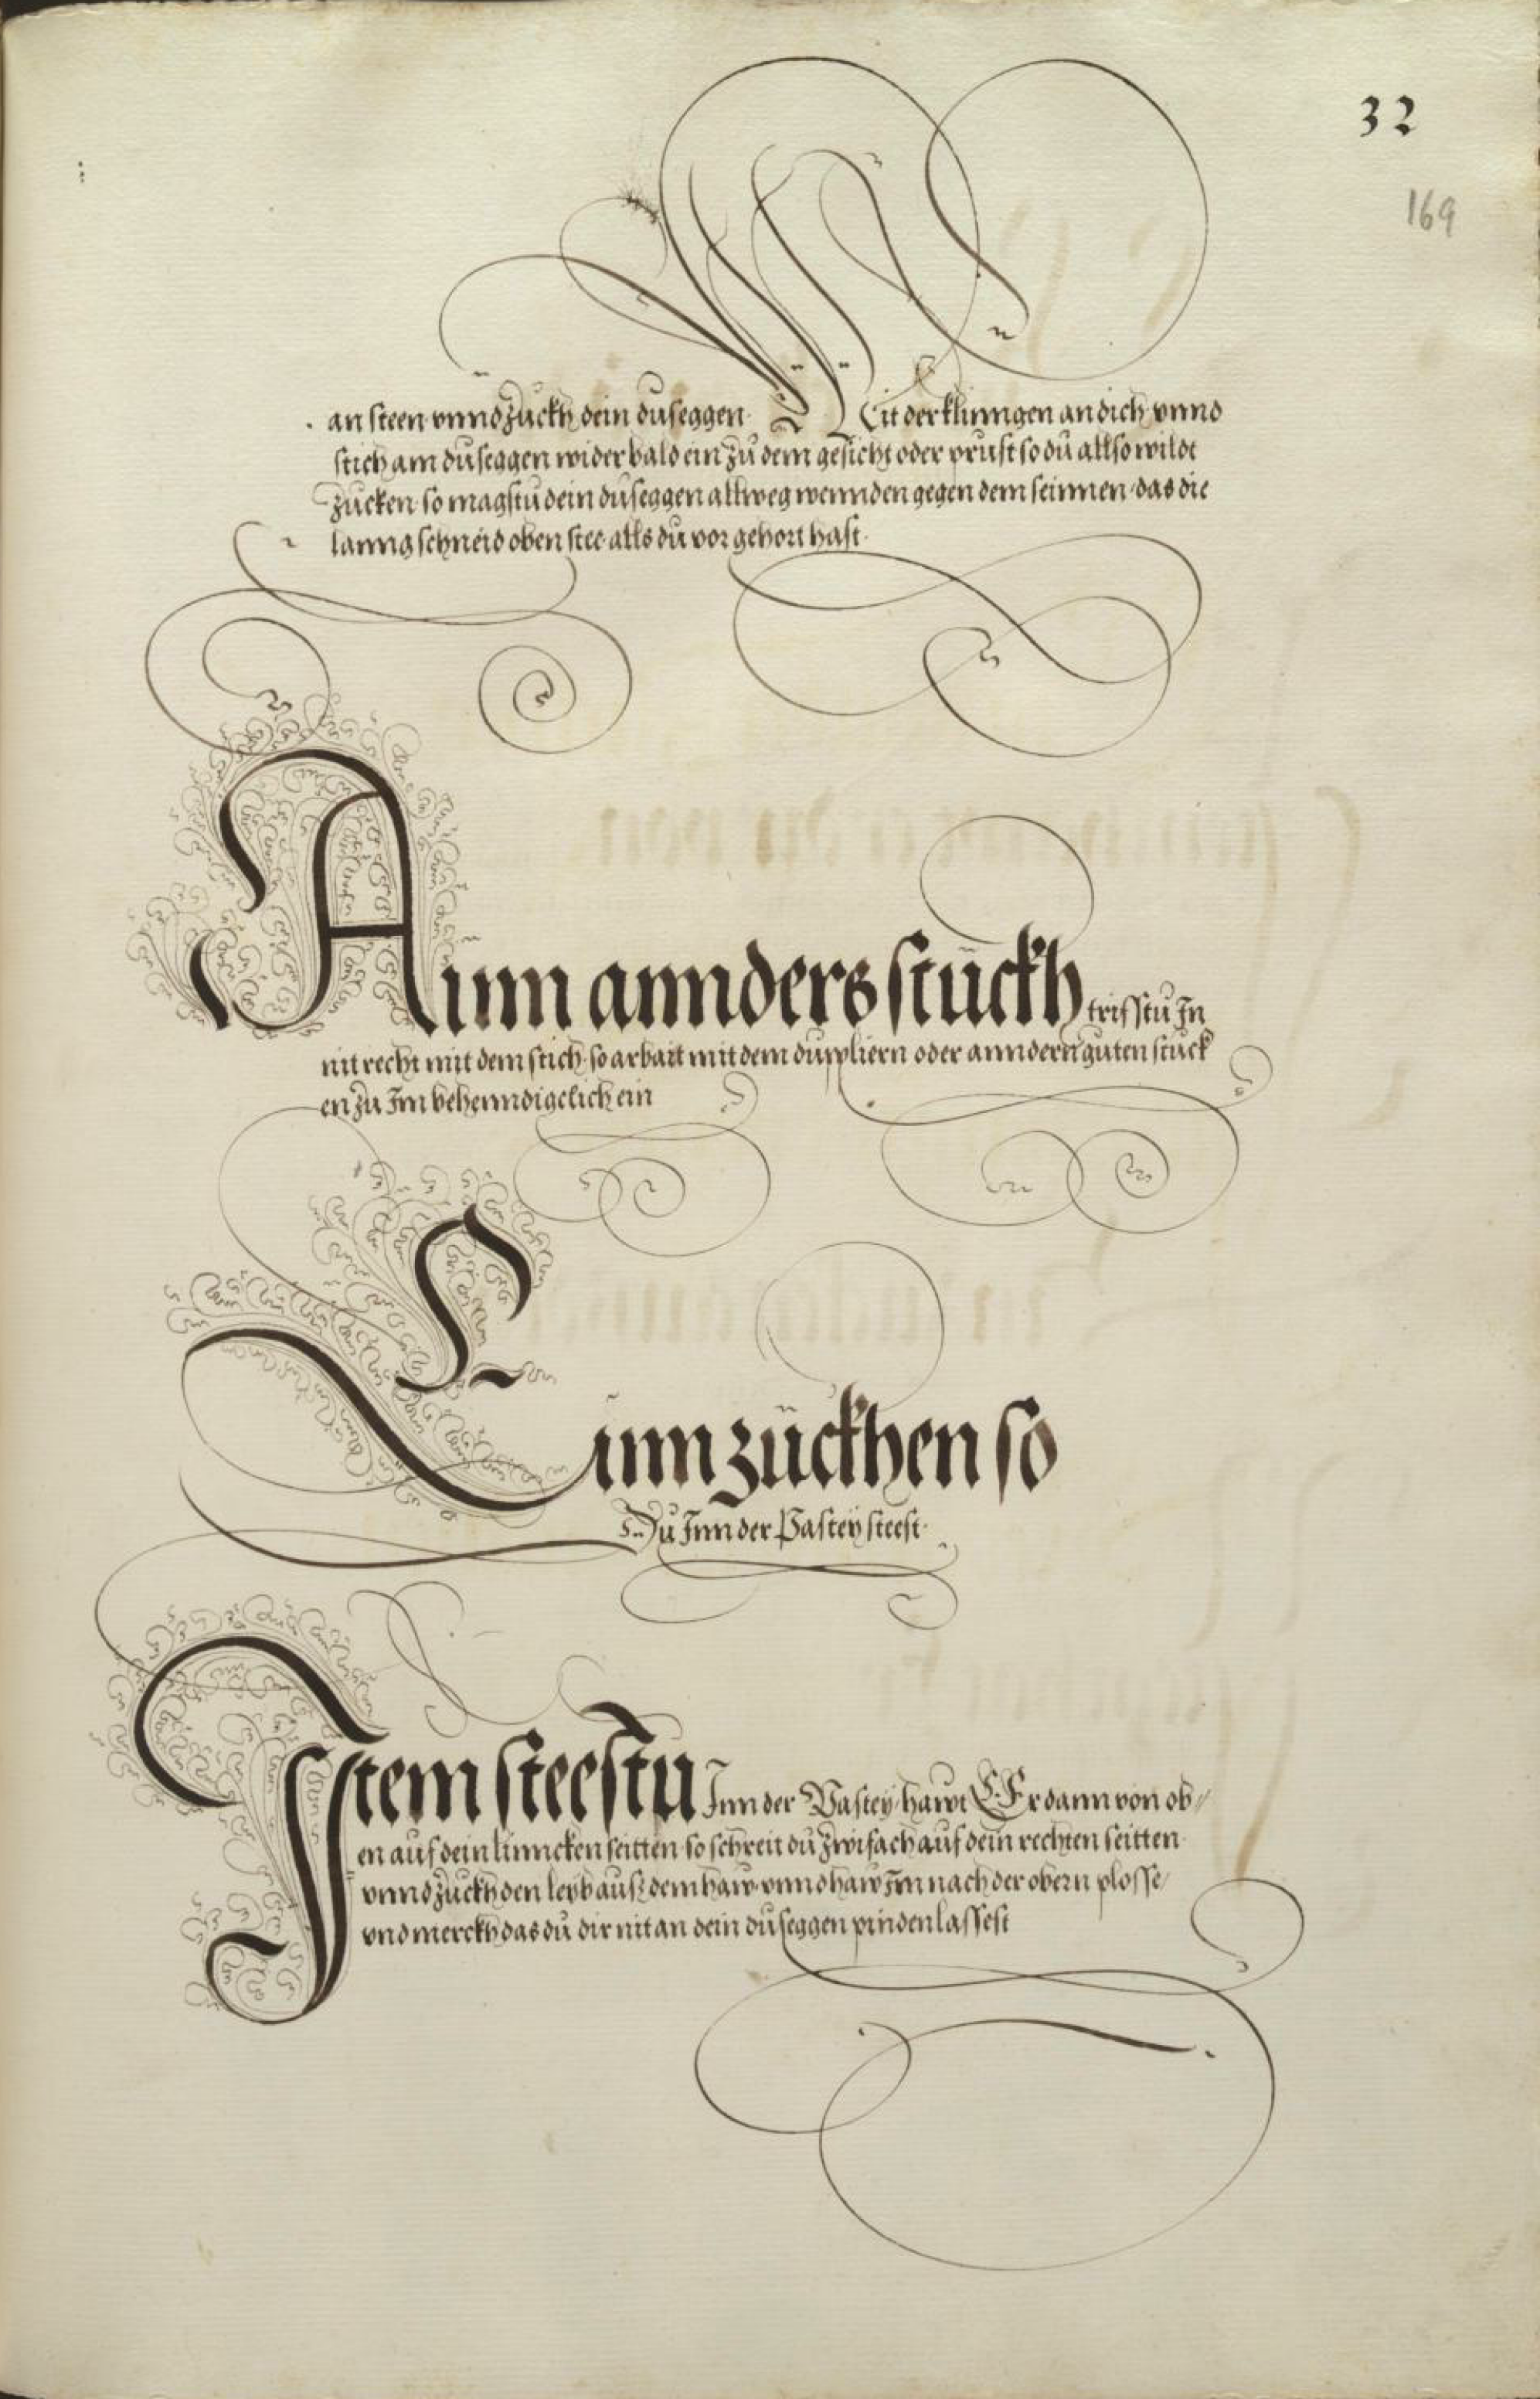 32
169
an steen vnnd zuckh dein duseggen Mit der klinngen an dich vnnd
stich am duseggen wider bald ein zu dem gesicht oder prust so du allso wildt
zucken so magstu dein duseggen allweg wennden gegen dem seinnen das die
lanng schneid oben stee alls du vor gehort hast
Ainn annders stuckh trifstu In
nit recht mit dem stich so arbait mit dem dupliern oder anndern guten stuck
en zu Im behenndigelich ein
Einn zuckhen so
Du Inn der Pastey steest
Item steestu Inn der Pastey hawt Er dann von ob
en auf dein linncken seitten so schreit du zwifach auf dein rechten seitten
vnnd zuckh den leyb ausz dem haw vnnd haw Im nach der obern plosse
vnd merckh das du dir nit an dein duseggen pinden lassest